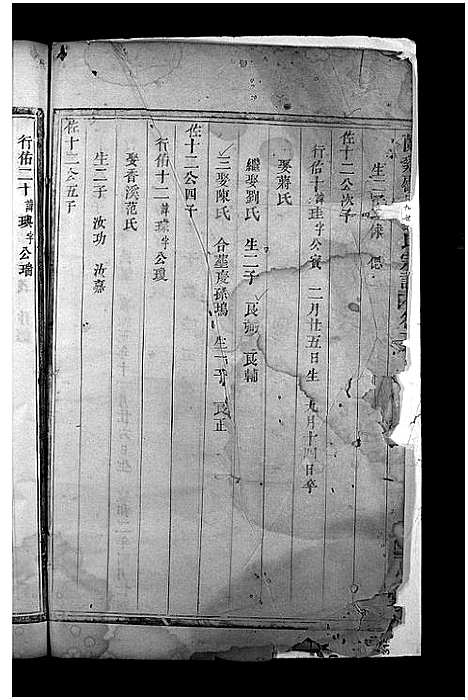 生二子
佐十二公次子
行佑十諱珪字公賓 二月廿五日生 九月十四日卒
娶蔣氏
繼娶劉氏 生二子 良弼 良輔
三娶陳氏 合塟慶孫塢 生一子 良正
佐十二公四子
行佑十二諱 字公瓊
娶香溪范氏
生二子 汝功 汝嘉
佐十二公五子
行佑二十諱瑛字公瑨